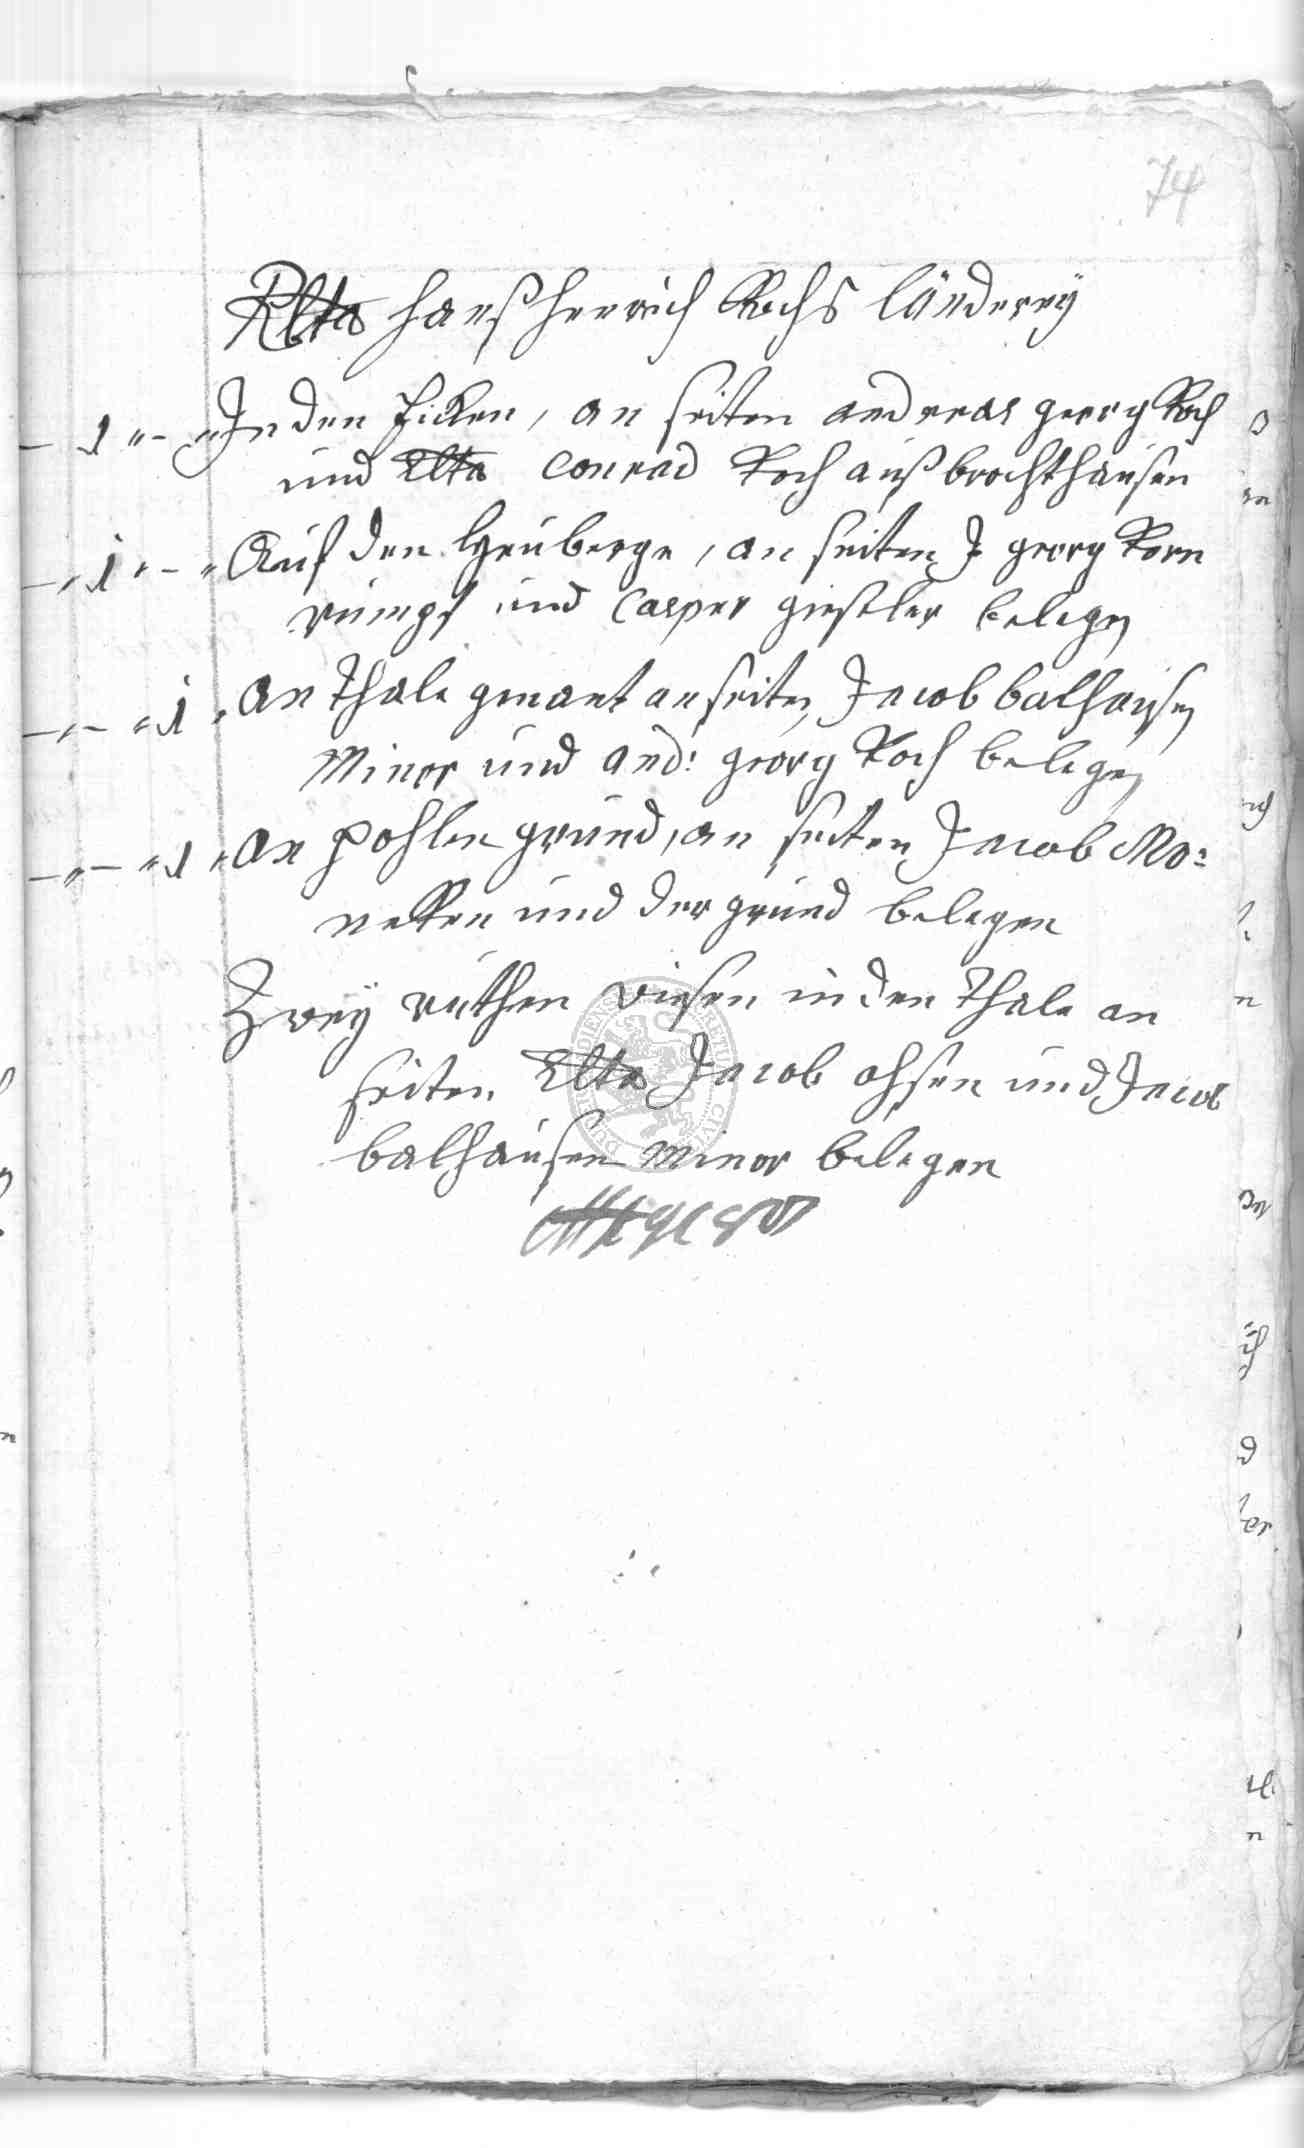 74
Rlta Hanß Henrich Kochs länderey
– 1 " – " In den Ficken, an seiten andreas georg Koch
und Elta Conrad Koch auß brochthausen
– " 1 " – " Auf den Heuberge, an seiten J georg Korn
rumpf und Casper gießler belegen
– " – " 1 " an Thale genant an seiten Jacob balhausen
Minor und and: georg Koch belegen
– " – " 1 " an pohlen grund, an seiten Jacob Mo:
necken und der grund belegen
Zwey ruthen wiesen in den Thale an
seiten Elta Jacob ohsen und Jacob
balhausen minor belegen